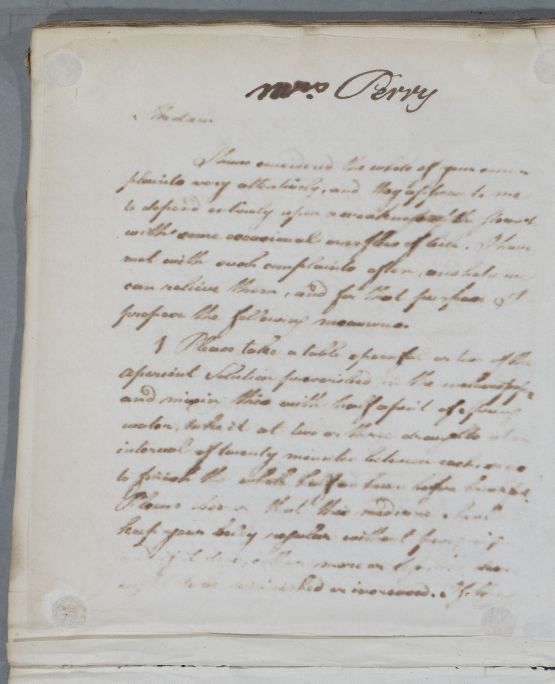 Mrs Perry
Madam
I have considered the whole of your com
plaints very attentively, and they appear to me
to depend entirely upon a weakness of the stomach
with some occasional overflow of bile. I have
met with such complaints often, and
can relieve them, and for that purpose I
propose the following measures
1 Please take a table spoonful or two of the
aperient Solution prescribed in the
and mixing this with half a pint of
water, take it at two or three draughts
interval of twenty minutes between each
to finish the whole half an hour before breakfast.
Please that this medicine
keep your belly regular without
more or
diminished or increased. If